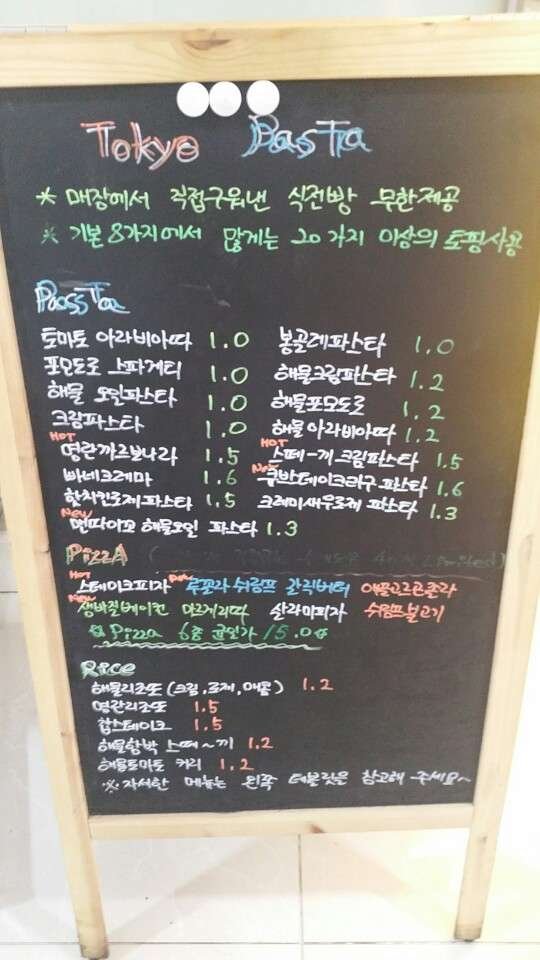 Tokyo PasTa
* 매장에서 직접구워낸 식전빵 무한제공
* 기본 8가지에서 많게는 20가지 이상의 토핑사용
PasTa
토마토 아라비아따 1.0 봉골레파스타 1.0
포모도로 스파게티 1.0 해물크림파스타 1.2
해물 오일파스타 1.0 해물포모도로 1.2
크림파스타 1.0 해물 아라비아따 1.2
HOT 명란까르보나라 1.5 HOT 스떼-끼 크림파스타 1.5
빠네크레마 1.6 New 큐브스테이크라구 파스타 1.6
핫치킨로제파스타 1.5 크레미새우로제 파스타 1.3
New 멘따이꼬 해물오일 파스타 1.3
PizzA
HOT 스테이크피자 New 루꼴라 쉬림프 갈릭버터 애플고르곤졸라
New 생바질베이컨 마르게리따 살라미피자 쉬림프불고기
Pizza 6종 균일가 15.0
Rice
해물리조또 (크림, 로제, 매콤) 1.2
명란리조또 1.5
찹스테이크 1.5
해물함박 스떼~끼 1.2
해물토마토 커리 1.2
※ 자세한 메뉴는 왼쪽 테블릿을 참고해 주세요~